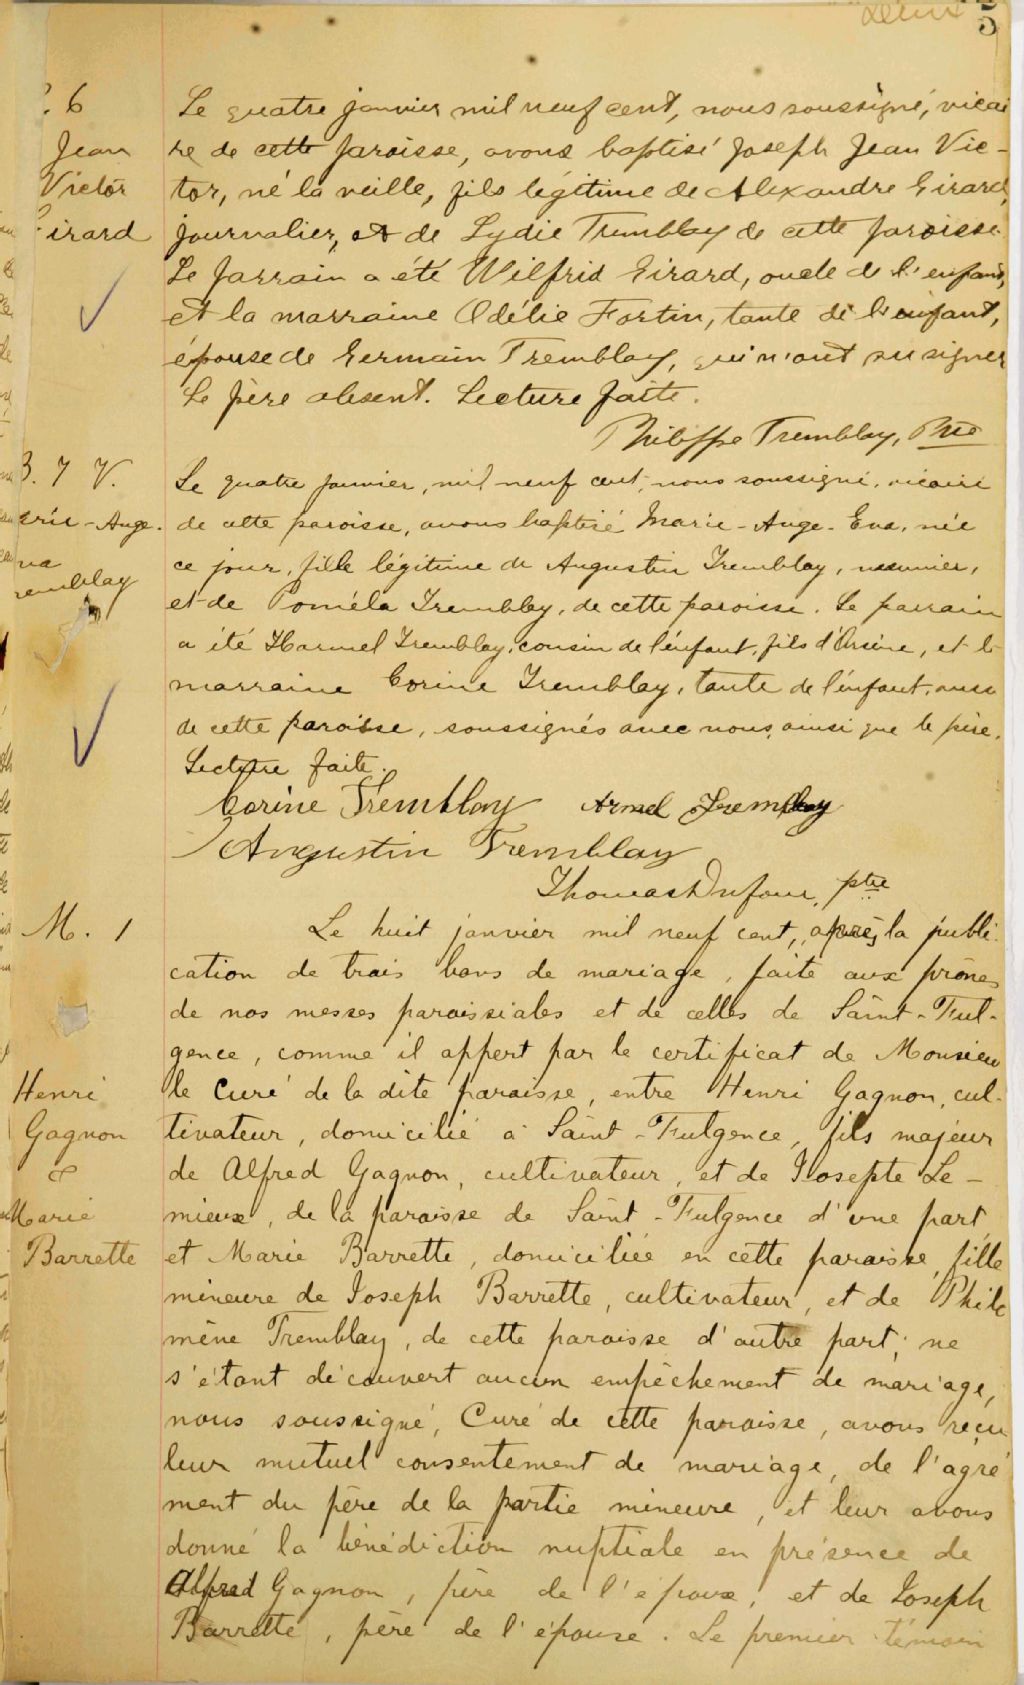 5
. 6
Jean
Victor
Girard
Le quatre janvier mil neuf cent, nous soussigné, vicai
re de cette paroisse, avons baptisé Joseph Jean Vic-
tor, né la veille, fils légitime de Alexandre Girard,
journalier, et de Lydie Tremblay de cette paroisse.
Le parrain a été Wilfrid Girard, oncle de l'enfant,
et la marraine Odélie Fortin, tante de l'enfant,
épouse de Germain Tremblay, qui n'ont su signer
Le père absent. Lecture faite.
Philippe Tremblay, Ptre
B. 7 V.
arie-Ange.
va
remblay
Le quatre janvier, mil neuf cent, nous soussigné, vicaire
de cette paroisse, avons baptisé Marie-Ange-Eva, née
ce jour, fille légitime de Augustin Tremblay, menuisier,
et de Poméla Tremblay, de cette paroisse. Le parrain
a été Harmel Tremblay, cousin de l'enfant, fils d'Arsène, et la
marraine Corine Tremblay, tante de l'enfant, aussi
de cette paroisse, soussignés avec nous, ainsi que le père.
Lecture faite.
Corine Tremblay Armel Tremblay
Augustin Tremblay
Thomas Dufour, ptre
M. 1
Henri
Gagnon
&
Marie
Barrette
Le huit janvier mil neuf cent, après la publi-
cation de trois bans de mariage, faite aux prônes
de nos messes paroissiales et de celles de Saint-Ful-
gence, comme il appert par le certificat de Monsieur
le Curé de la dite paroisse, entre Henri Gagnon, cul-
tivateur, domicilié à Saint-Fulgence, fils majeur
de Alfred Gagnon, cultivateur, et de Josepte Le-
mieux, de la paroisse de Saint-Fulgence d'une part,
et Marie Barrette, domiciliée en cette paroisse, fille
mineure de Joseph Barrette, cultivateur, et de Philo
mène Tremblay, de cette paroisse d'autre part; ne
s'étant découvert aucun empêchement de mariage,
nous soussigné, Curé de cette paroisse, avons reçu
leur mutuel consentement de mariage, de l'agré
ment du père de la partie mineure, et leur avons
donné la bénédiction nuptiale en présence de
Alfred Gagnon, père de l'époux, et de Joseph
Barrette, père de l'épouse. Le premier témoin